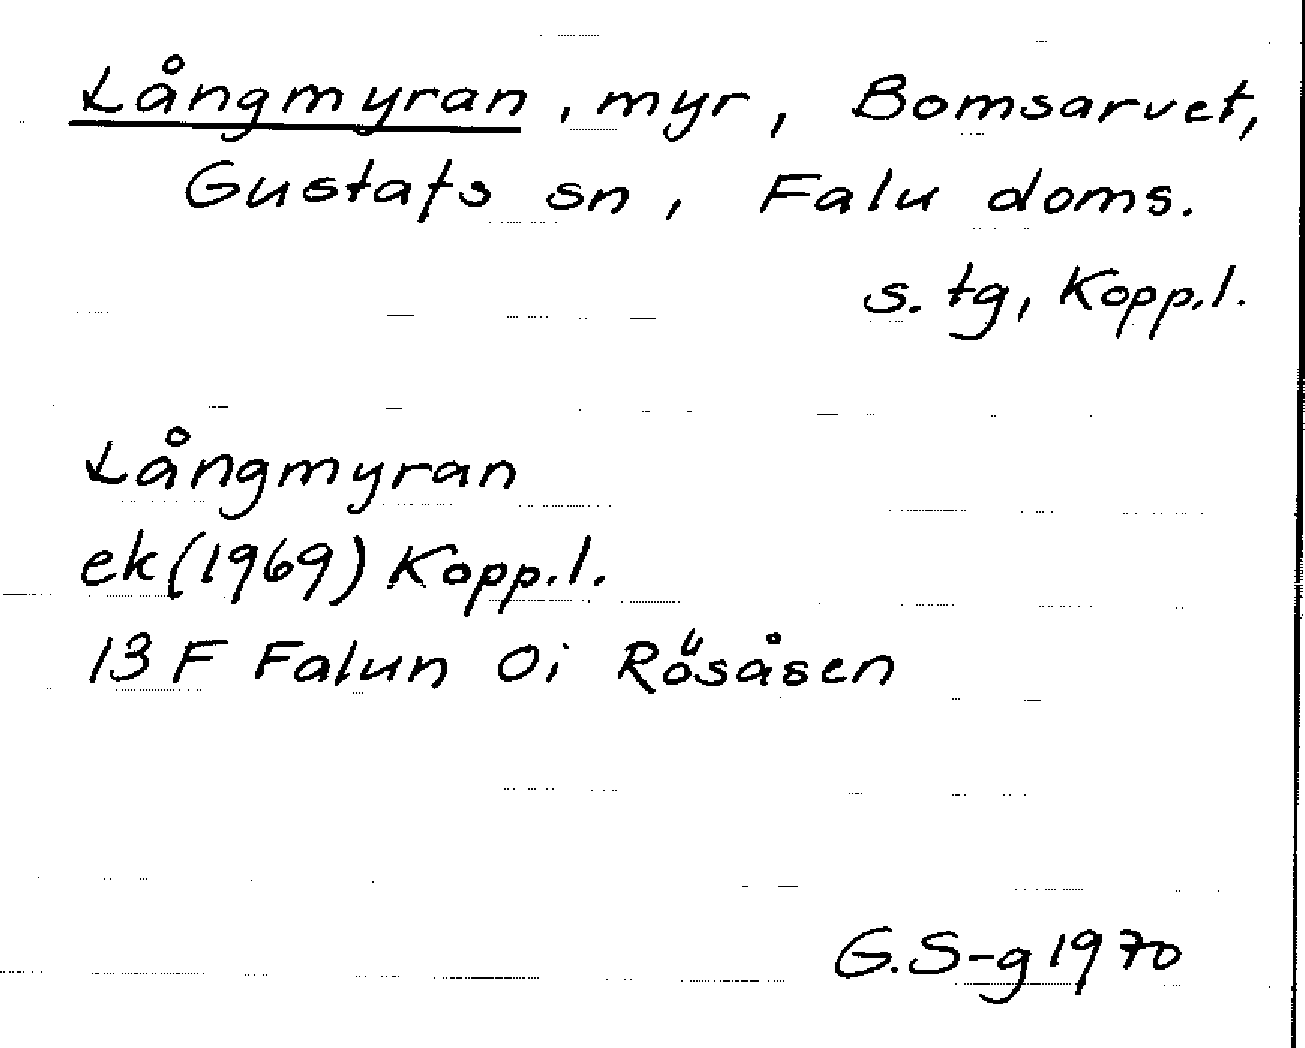 Långmyran, myr, Bomsarvet,
Gustafs sn, Falu doms.
s. tg, Kopp.l.
Långmyran
ek (1969) Kopp.l.
13 F Falun 0i Rösåsen
G.S-g 1970